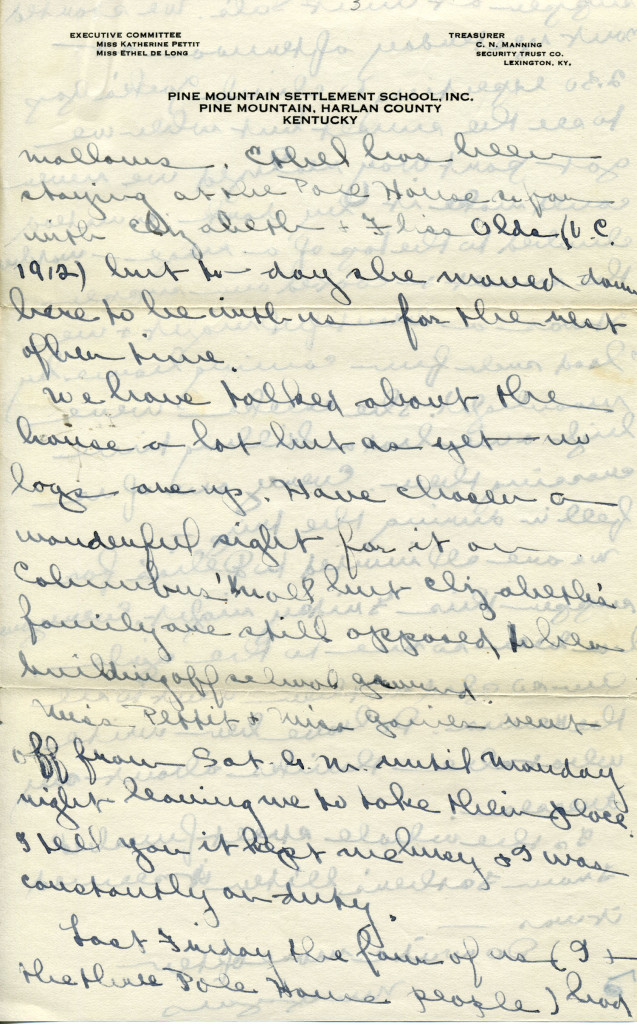 3
EXECUTIVE COMMITTEE
MISS KATHERINE PETTIT
MISS ETHEL DE LONG
TREASURER
C. N. MANNING
SECURITY TRUST CO.
LEXINGTON, KY.
PINE MOUNTAIN SETTLEMENT SCHOOL, INC.
PINE MOUNTAIN, HARLAN COUNTY
KENTUCKY
mallows. Ethel has been
staying at the Pole House
with Elizabeth + Miss Olds (V.C.
1912) but to-day she moved down
here to be with us for the rest
of her time.
We have talked about the
house a lot but as yet no
logs are up. Have chosen a
wonderful sight for it on
Columbus' but Elizabeth's
family are still opposed to her
building off school ground
Miss Pettit + Miss went
off from Sat. A. M. until Monday
night leaving me to take their place.
I tell you it kept me busy & I was
constantly on duty.
Last Friday the four of us (I +
the three Pole House people) had